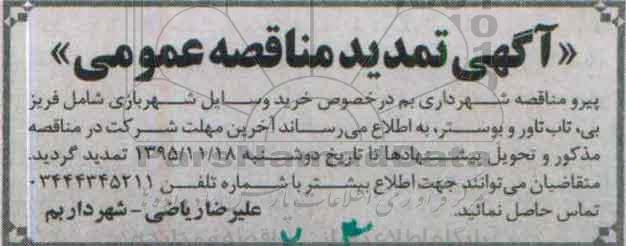 «آگهی تمدید مناقصه عمومی»
پیرو مناقصه شهرداری بم در خصوص خرید وسایل شهربازی شامل فریز
بی، تاب تاور و بوستر، به اطلاع می رساند آخرین مهلت شرکت در مناقصه
مذکور و تحویل پیشنهادها تا تاریخ دوشنبه ۱۳۹۵/۱۱/۱۸ تمدید گردید.
متقاضیان می توانند جهت اطلاع بیشتر با شماره تلفن ۰۳۴۴۴۳۴۵۲۱۱
تماس حاصل نمائید.
علیرضا ریاضی - شهردار بم